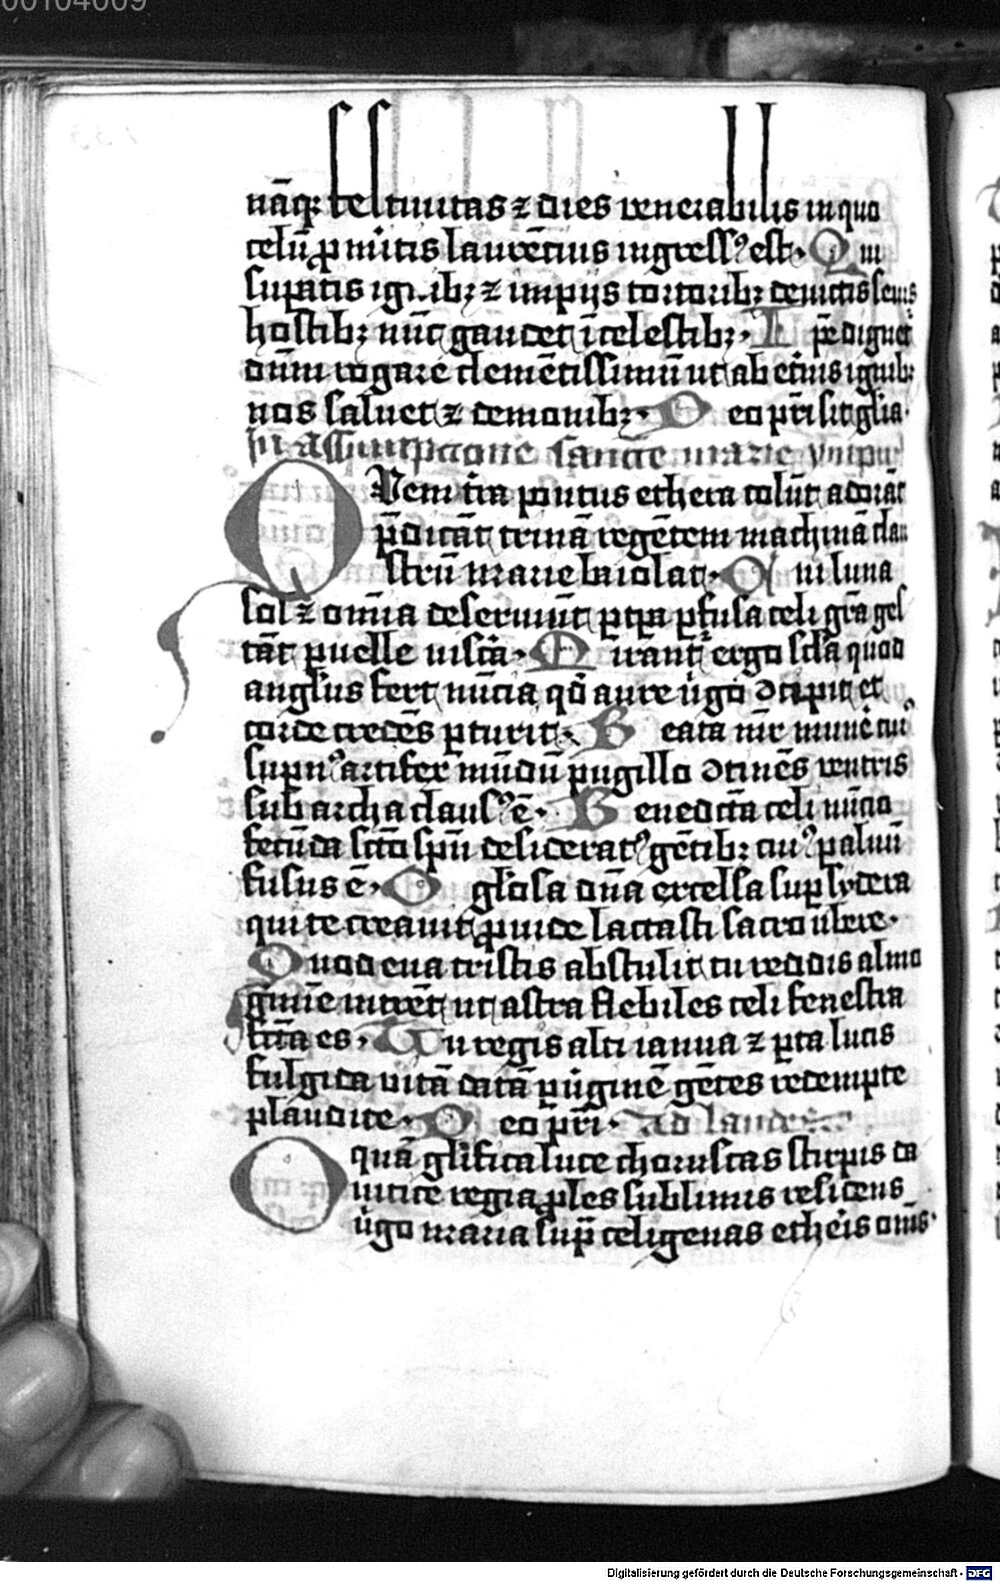 00104009
nāq; festiuitas ⁊ dies venerabilis in qua
celū ꝓ mitis laurētius ingress⁹ est. Qui
supatis ignibꝫ ⁊ impijs tortoribꝫ deuictis seuis
hostibꝫ nūc gaudet ī celestibꝫ. I pē diguet
dūm rogare clemētissimū ut ab etnis ignibꝫ
nos saluet ⁊ demonibꝫ. D eo pri sit glia.
In assumpcione sancte marie ympn
Quem tra pontus ethera colūt adorāt
p̄dicāt trinā regētem machinā clau
strū marie baiolat. Cui luna
sol ⁊ omīa deseruiūt ꝑ tꝑa ꝑfusa celi gra ges
tāt puelle uiscā. Mirant ergo scla quod
anglus fert nūcia qd aure v̓go ↄcipit et
corde credēs ꝑturit. Beata mr munē cui⁹
supn⁹ artifex mūdū pugillo ↄtinēs ventris
sub archa claus⁹ ē. Benedicta celi nūcio
fecūda scto spū desiderat⁹ gētibꝫ cui⁹ ꝑ aluū
fusus ē. O glosa dūa excelsa sup sydera
qui te creauit ꝓuide lactasti sacro ubere.
Quod eua tristis abstulit tu reddis almo
gmīe intrēt ut astra flebiles celi fenestra
fcā es. Tu regis alti ianua ⁊ ꝑta lucis
fulgida uitā datā ꝑ v̓ginē gētes redempte
plaudite. D eo pri. Ad laudes
O quā glifica luce choruscas stirpis da
uitice regia ꝓles sublimis residens
v̓go maria sup celigenas etheis om̄s.
Digitalisierung gefördert durch die Deutsche Forschungsgemeinschaft - DFG